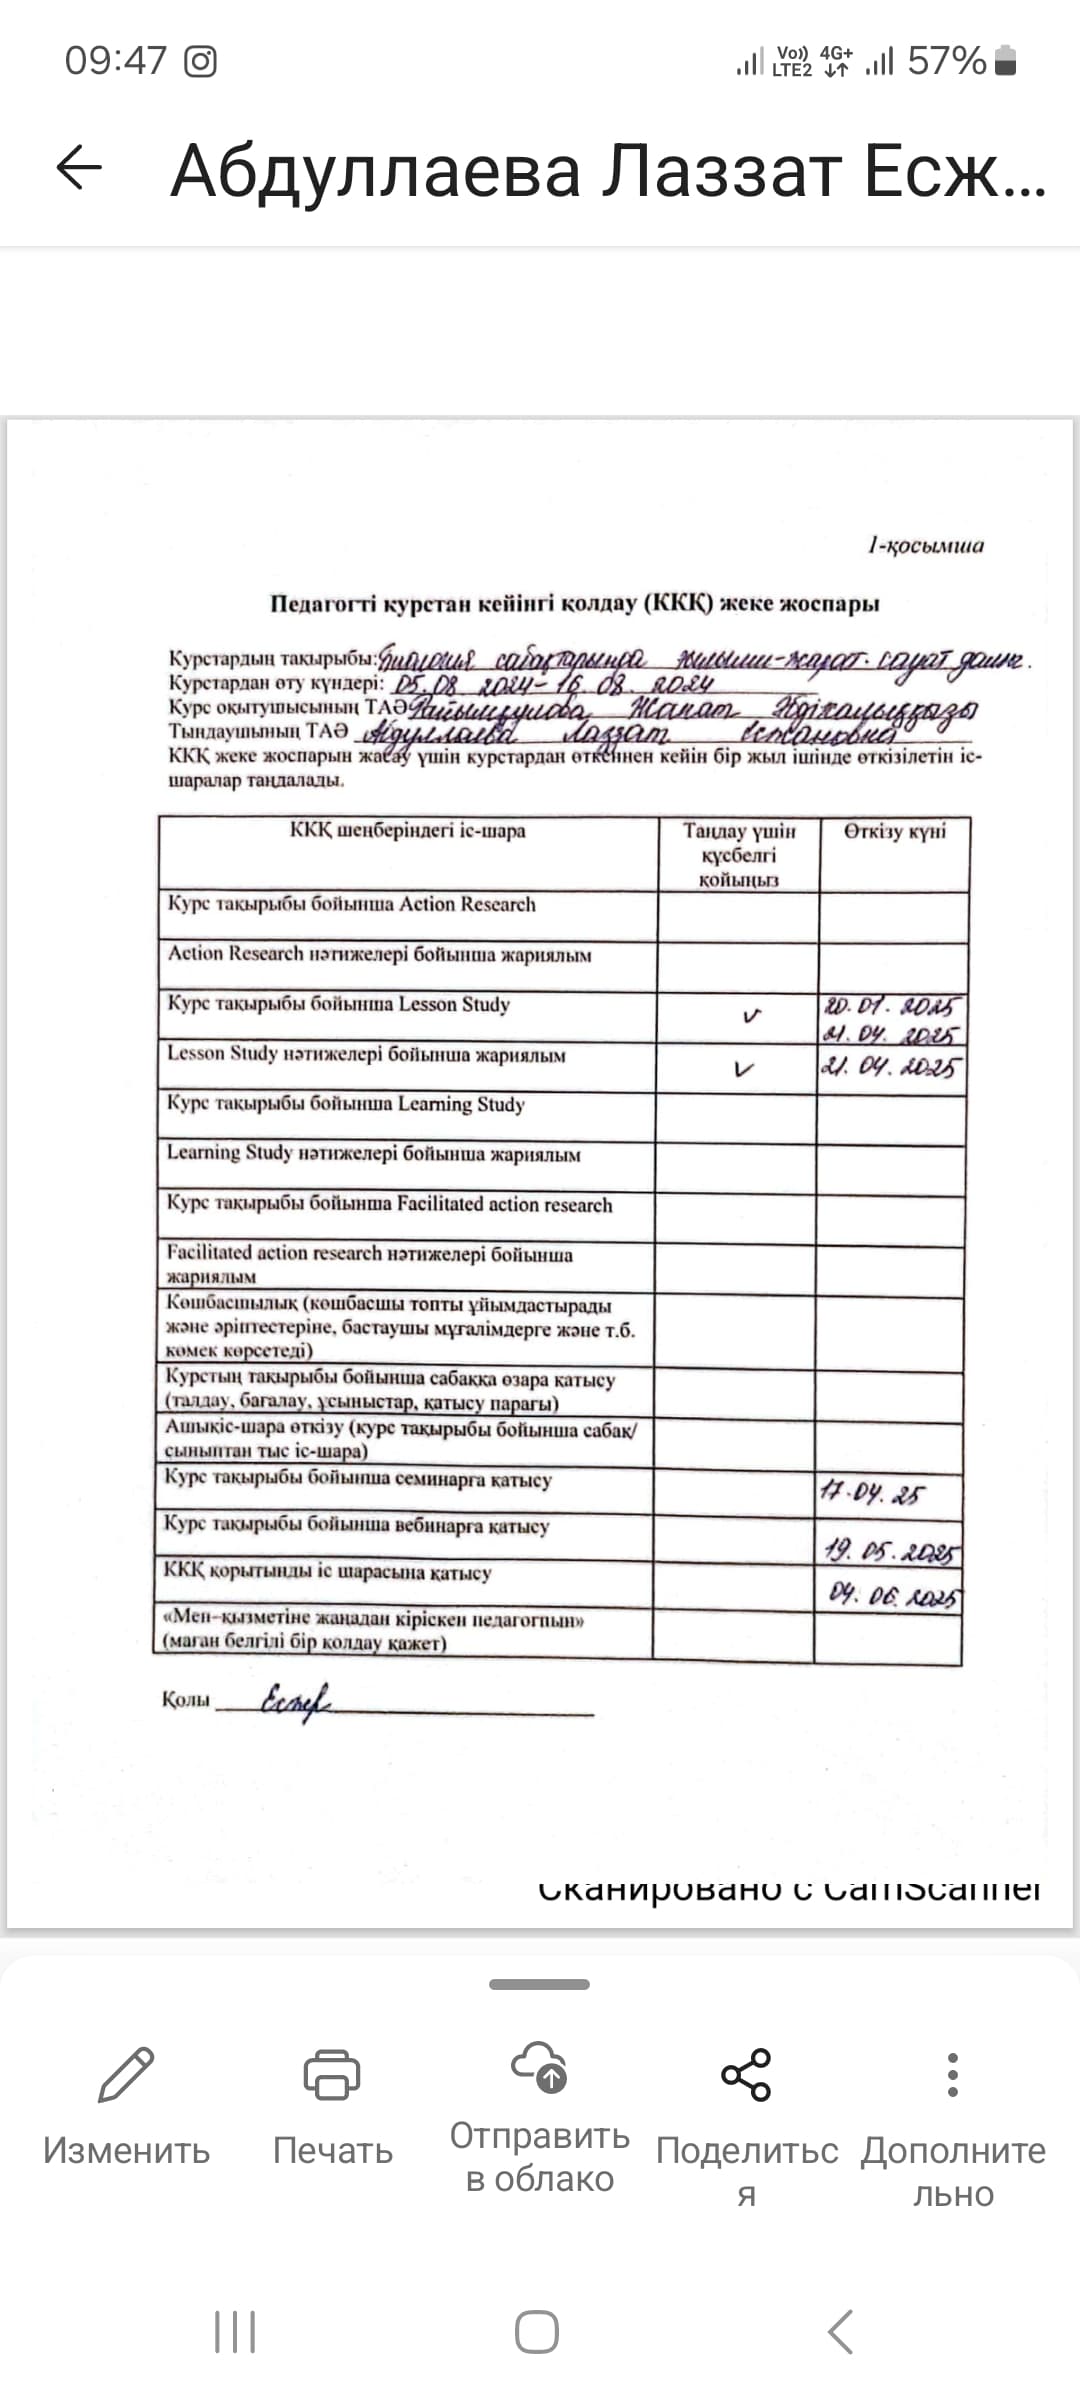 09:47
Vo)) 4G+
LTE2
57%
Абдуллаева Лаззат Есж...
1-қосымша
Педагогті курстан кейінгі қолдау (ККҚ) жеке жоспары
Курстардың тақырыбы: Биология сабақтарында жылыми-жарат. сауат. дамыт.
Курстардан өту күндері: 05.08 2024- 16.08. 2024
Курс оқытушысының ТАӘ Жанат
Тыңдаушының ТАӘ Абдуллаева Лаззат
ККҚ жеке жоспарын жасау үшін курстардан өткеннен кейін бір жыл ішінде өткізілетін іс-
шаралар таңдалады.
ККҚ шеңберіндегі іс-шара
Таңдау үшін
құсбелгі
қойыңыз
Өткізу күні
Курс тақырыбы бойынша Action Research
Action Research нәтижелері бойынша жариялым
Курс тақырыбы бойынша Lesson Study
20. 01. 2025
21. 04. 2025
Lesson Study нәтижелері бойынша жариялым
21. 04. 2025
Курс тақырыбы бойынша Learning Study
Learning Study нәтижелері бойынша жариялым
Курс тақырыбы бойынша Facilitated action research
Facilitated action research нәтижелері бойынша
жариялым
Көшбасшылық (көшбасшы топты ұйымдастырады
және әріптестеріне, бастаушы мұғалімдерге және т.б.
көмек көрсетеді)
Курстың тақырыбы бойынша сабаққа өзара қатысу
(талдау, бағалау, ұсыныстар, қатысу парағы)
Ашықіс-шара өткізу (курс тақырыбы бойынша сабақ/
сыныптан тыс іс-шара)
Курс тақырыбы бойынша семинарға қатысу
17.04. 25
Курс тақырыбы бойынша вебинарға қатысу
19. 05. 2025
ККҚ қорытынды іс шарасына қатысу
04. 06. 2025
«Мен–қызметіне жаңадан кіріскен педагогпын»
(маған белгілі бір қолдау қажет)
Қолы
Сканировано с CamScanner
Изменить
Печать
Отправить
в облако
Поделитьс
я
Дополните
льно